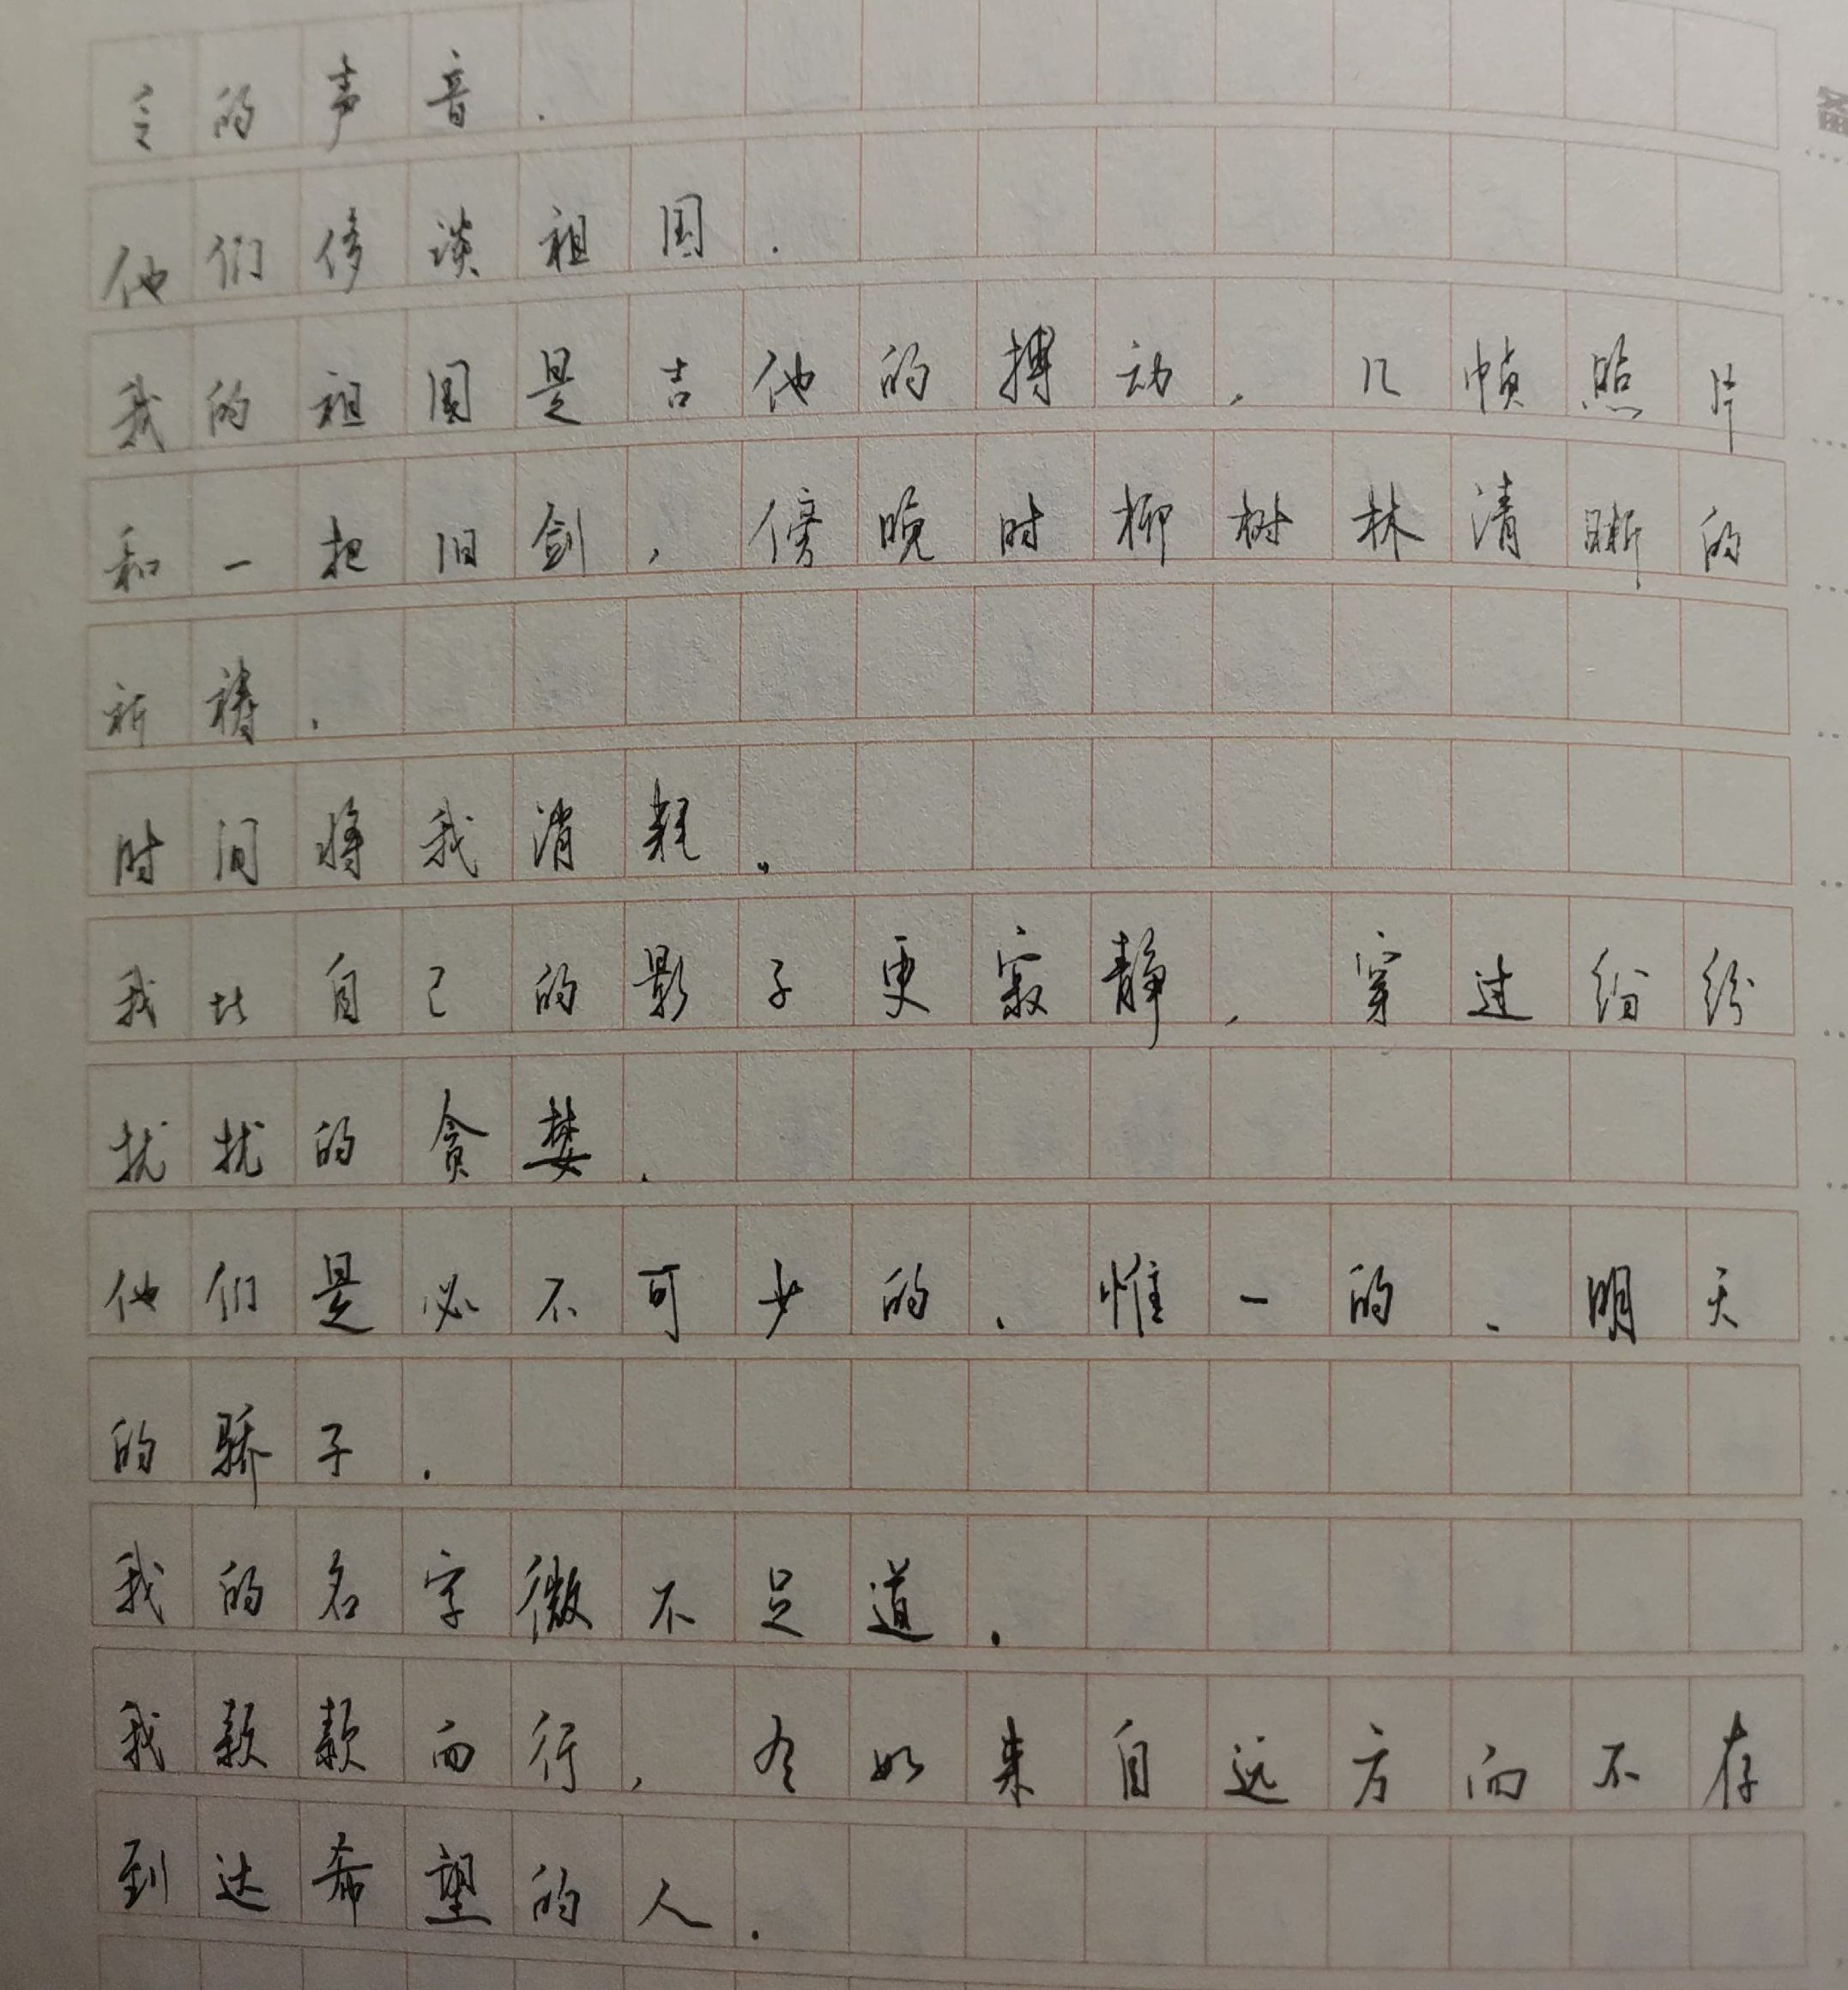 的声音.
他们侈谈祖国.
我的祖国是吉他的搏动,几帧照片
和一把旧剑,傍晚时柳树林清晰的
祈祷.
时间将我消耗。
我比自己的影子更寂静,穿过纷纷
扰扰的贪婪.
他们是必不可少的、惟一的、明天
的骄子.
我的名字微不足道.
我款款而行,有如来自远方而不存
到达希望的人.